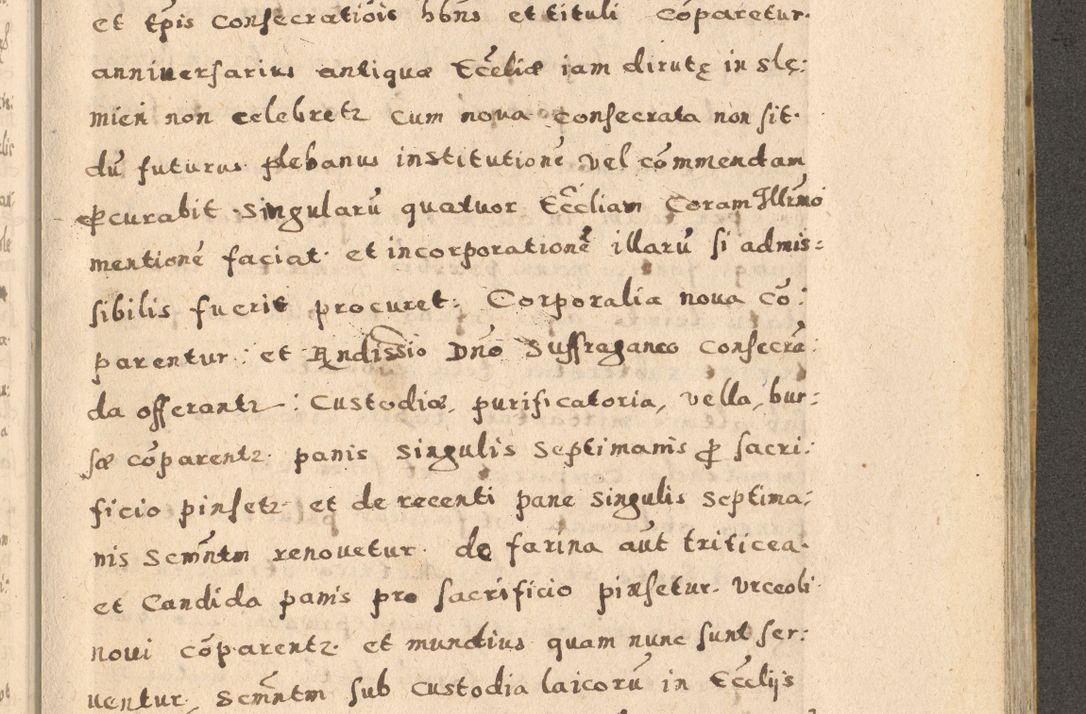 et tp̄is Consecratiōis hb̄ns et tituli cōparetur.
anniuersarius antiquæ Ecc̄liæ iam dirutę in Slę:
mień non celebretz cum noua consecrata non sit.
dū futurus plebanus institutionē vel cōmmendam
ꝓcurabit singularū quatuor Ecc̄liam Coram Illr̄mo
mentionē faciat. et incorporationē illarū si admis:
sibilis fuerit procuret: Corporalia noua cō:
parentur: et Rndissīo Dn̄o Suffraganeo consecrā:
da offerantz: Custodiæ, purificatoria, vella, bur:
sæ cōparentz. panis singulis Septimanis ꝓ sacri:
ficio pinsetz. et de recenti pane singulis septima:
nis Scm̄ntm renouetur. de farina aūt triticea.
et Candida panis pro sacrificio pinsetur. Vrceoli
noui cōparentz. et mundius quam nunc sunt ser:
uentur. Scm̄ntm sub custodia laicorū in Ecc̄lijs